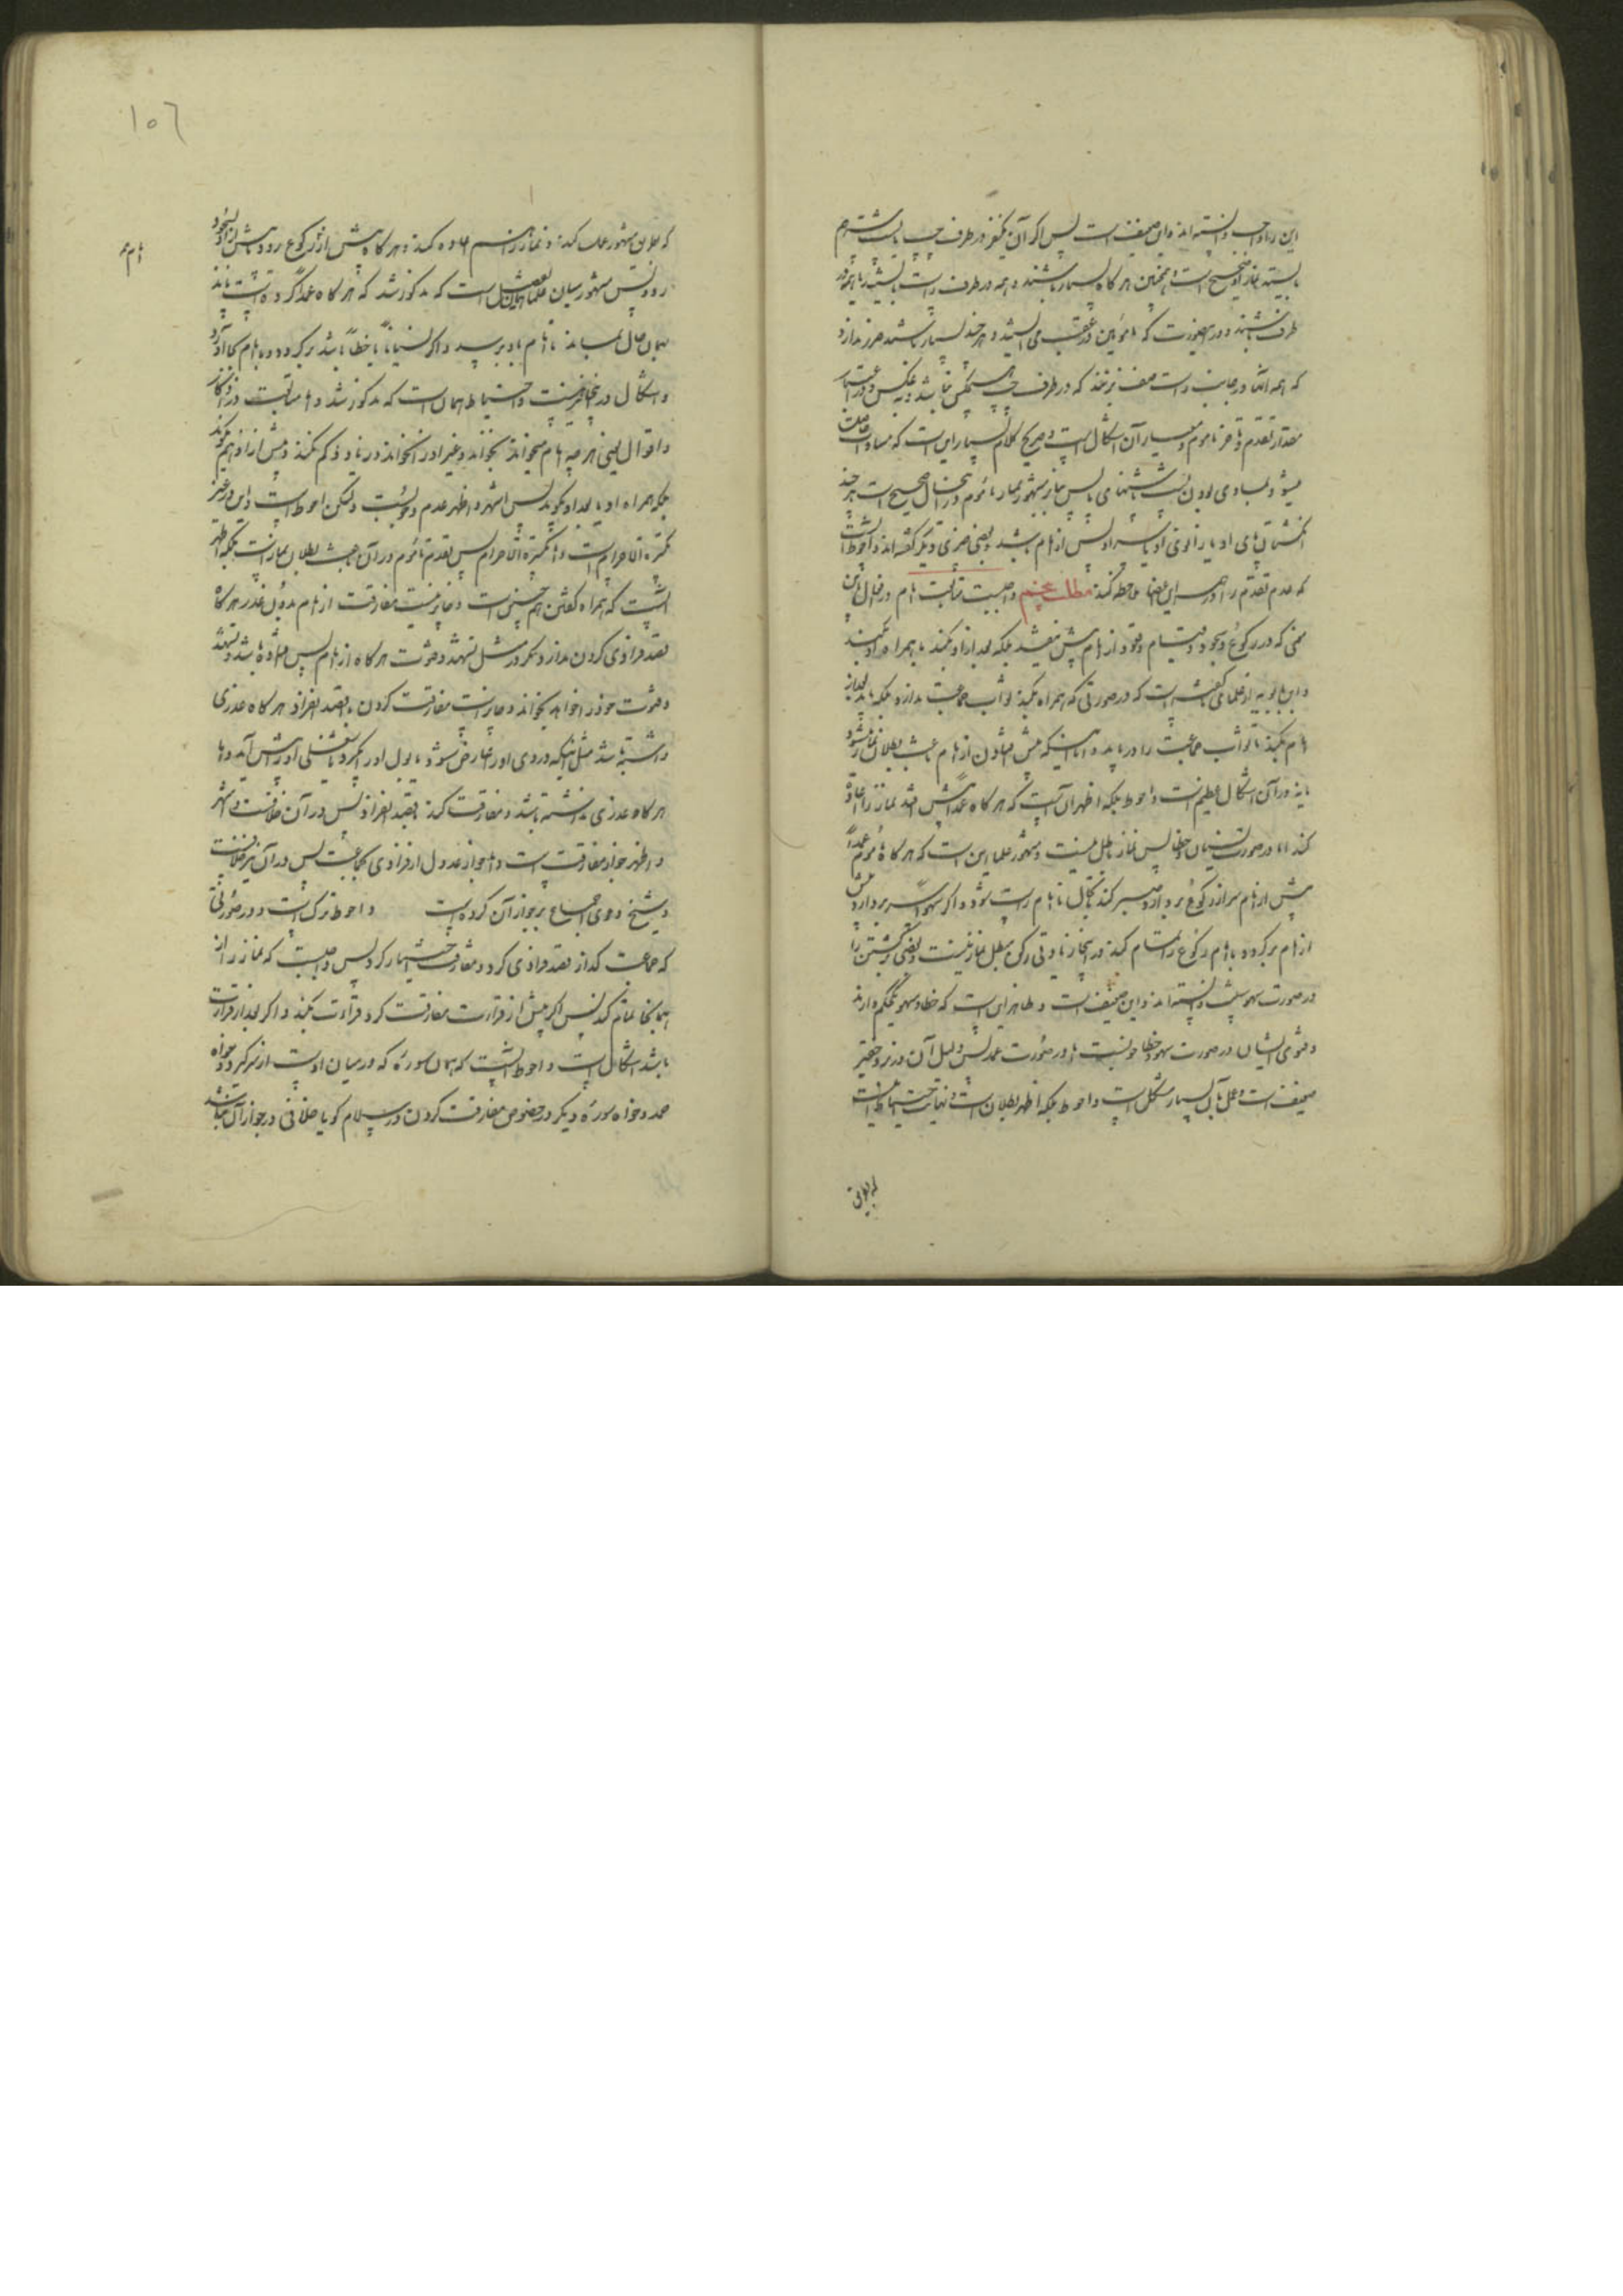 این را واجب دانسته‌اند و این ضعیف است پس اگر آن یکنفر در طرف چپ یا پشت سر هم
بایستد نماز او صحیح است و همچنین هر گاه بسیار باشند و همه در طرف راست بایستند یا همه در
طرف باشند و در صورت که مأمومین در عقب می ایستند و هر چند بسیار باشند ضرر ندارد
که همه آنها در جانب راست صف برزنند که در طرف چپ هیچکس نباشد و بعکس و در اعتبار
مقدار تقدم و تأخر مأموم و معیار آن اشکال است و صریح کلام بسیار این است که مساوات
میشود بمساوی بودن پاشنهای پا پس بنابر مشهور نماز مأموم در این حال صحیح است هر چند
انگشتان پای او یا زانوی او یا سر او پیش از امام باشد و بعضی ضرری دیگر گفته‌اند و احوط آنست
که عدم تقدم را در همه این اعضا ملاحظه کند مطلب پنجم واجبست متابعت امام در افعال باین
معنی که در رکوع و سجود و قیام و قعود از امام پیش نیفتند بلکه بعد از او بکنند یا همراه او بکنند
و ابن بابویه از علما گفته است که در صورتی که همراه بکند ثواب جماعت ندارد بلکه باید بعد از
امام بکند تا ثواب جماعت را دریابد و اما اینکه پیش افتادن از امام باعث بطلان نماز میشود
یا نه در آن اشکال عظیم است و احوط بلکه اظهر آن است که هر گاه عمداً پیش افتد نماز را اعاده
کند اما در صورت نسیان و خطا پس نماز باطل نیست و مشهور علما این است که هر گاه مأموم عمداً
پیش از امام سر از رکوع بردارد صبر کند بحال تا امام راست شود و اگر سهواً سر بردارد پیش
از امام برگردد با امام رکوع را تمام کند و در اینجا زیادتی رکن مبطل نماز نیست و بعضی برگشتن را
در صورت سهو سنت دانسته‌اند و این ضعیف است و ظاهر این است که خطا و سهو یک حکم دارند
و فتوی ایشان در صورت سهو و خطا خوبست اما در صورت عمد پس دلیل آن در نزد حقیر
ضعیف است و عمل بآن بسیار مشکل است و احوط بلکه اظهر بطلان است و نهایت احتیاط اینست
که بطریق
١٥٦
که بطریق مشهور عمل کند و نماز را هم اعاده کند و هر گاه پیش از او برکوع رود یا پیش از او بسجود
رود پس مشهور میان علما همان تفصیل است که مذکور شد که هر گاه عمداً کرده است باید
بهمان حال بماند تا امام باو برسد و اگر نسیاناً یا خطاً باشد برگردد و با امام بجا آورد
و اشکال در اینجا نیز هست و احتیاط همان است که مذکور شد و اما متابعت در اذکار
و اقوال یعنی هر چه امام میخواند بخواند و غیر او را نخواند و زیاد و کم نکند و پیش از او هم نگوید
بلکه همراه او یا بعد او گوید پس اشهر و اظهر عدم وجوبست ولیکن احوط است و این در غیر
تکبیرة الاحرام است و اما تکبیرة الاحرام پس تقدم مأموم در آن باعث بطلان نماز است بلکه اظهر
آنست که همراه گفتن هم چنین است و جایز نیست مفارقت از امام بدون عذر هر گاه
قصد فرادی کردن ندارد مگر در مثل تشهد و قنوت هر گاه از امام پس افتاده باشد و تشهد
و قنوت خود را خواهد بخواند و جایز است مفارقت کردن بقصد انفراد هر گاه عذری
داشته باشد مثل اینکه دردی او را عارض شود یا بول او را بگیرد یا شغلی او را پیش آید و اما
هر گاه عذری نداشته باشد و مفارقت کند بقصد انفراد پس در آن خلافست و اشهر
و اظهر جواز مفارقت است و اما جواز عدول از فرادی بجماعت پس در آن نیز خلافست
و شیخ دعوی اجماع بر جواز آن کرده است و احوط ترک است و در صورتی
که جماعت گذار قصد فرادی کرد و مفارقت اختیار کرد پس واجبست که نماز را از
همانجا تمام کند پس اگر پیش از قرائت مفارقت کرد قرائت بکند و اگر بعد از قرائت
باشد اشکال است و احوط آنست که همان سوره که در میان اوست از سر گیرد خواه
حمد و خواه سوره و دیگر در خصوص مفارقت کردن در سلام گویا خلافی در جواز آن نباشد
امام